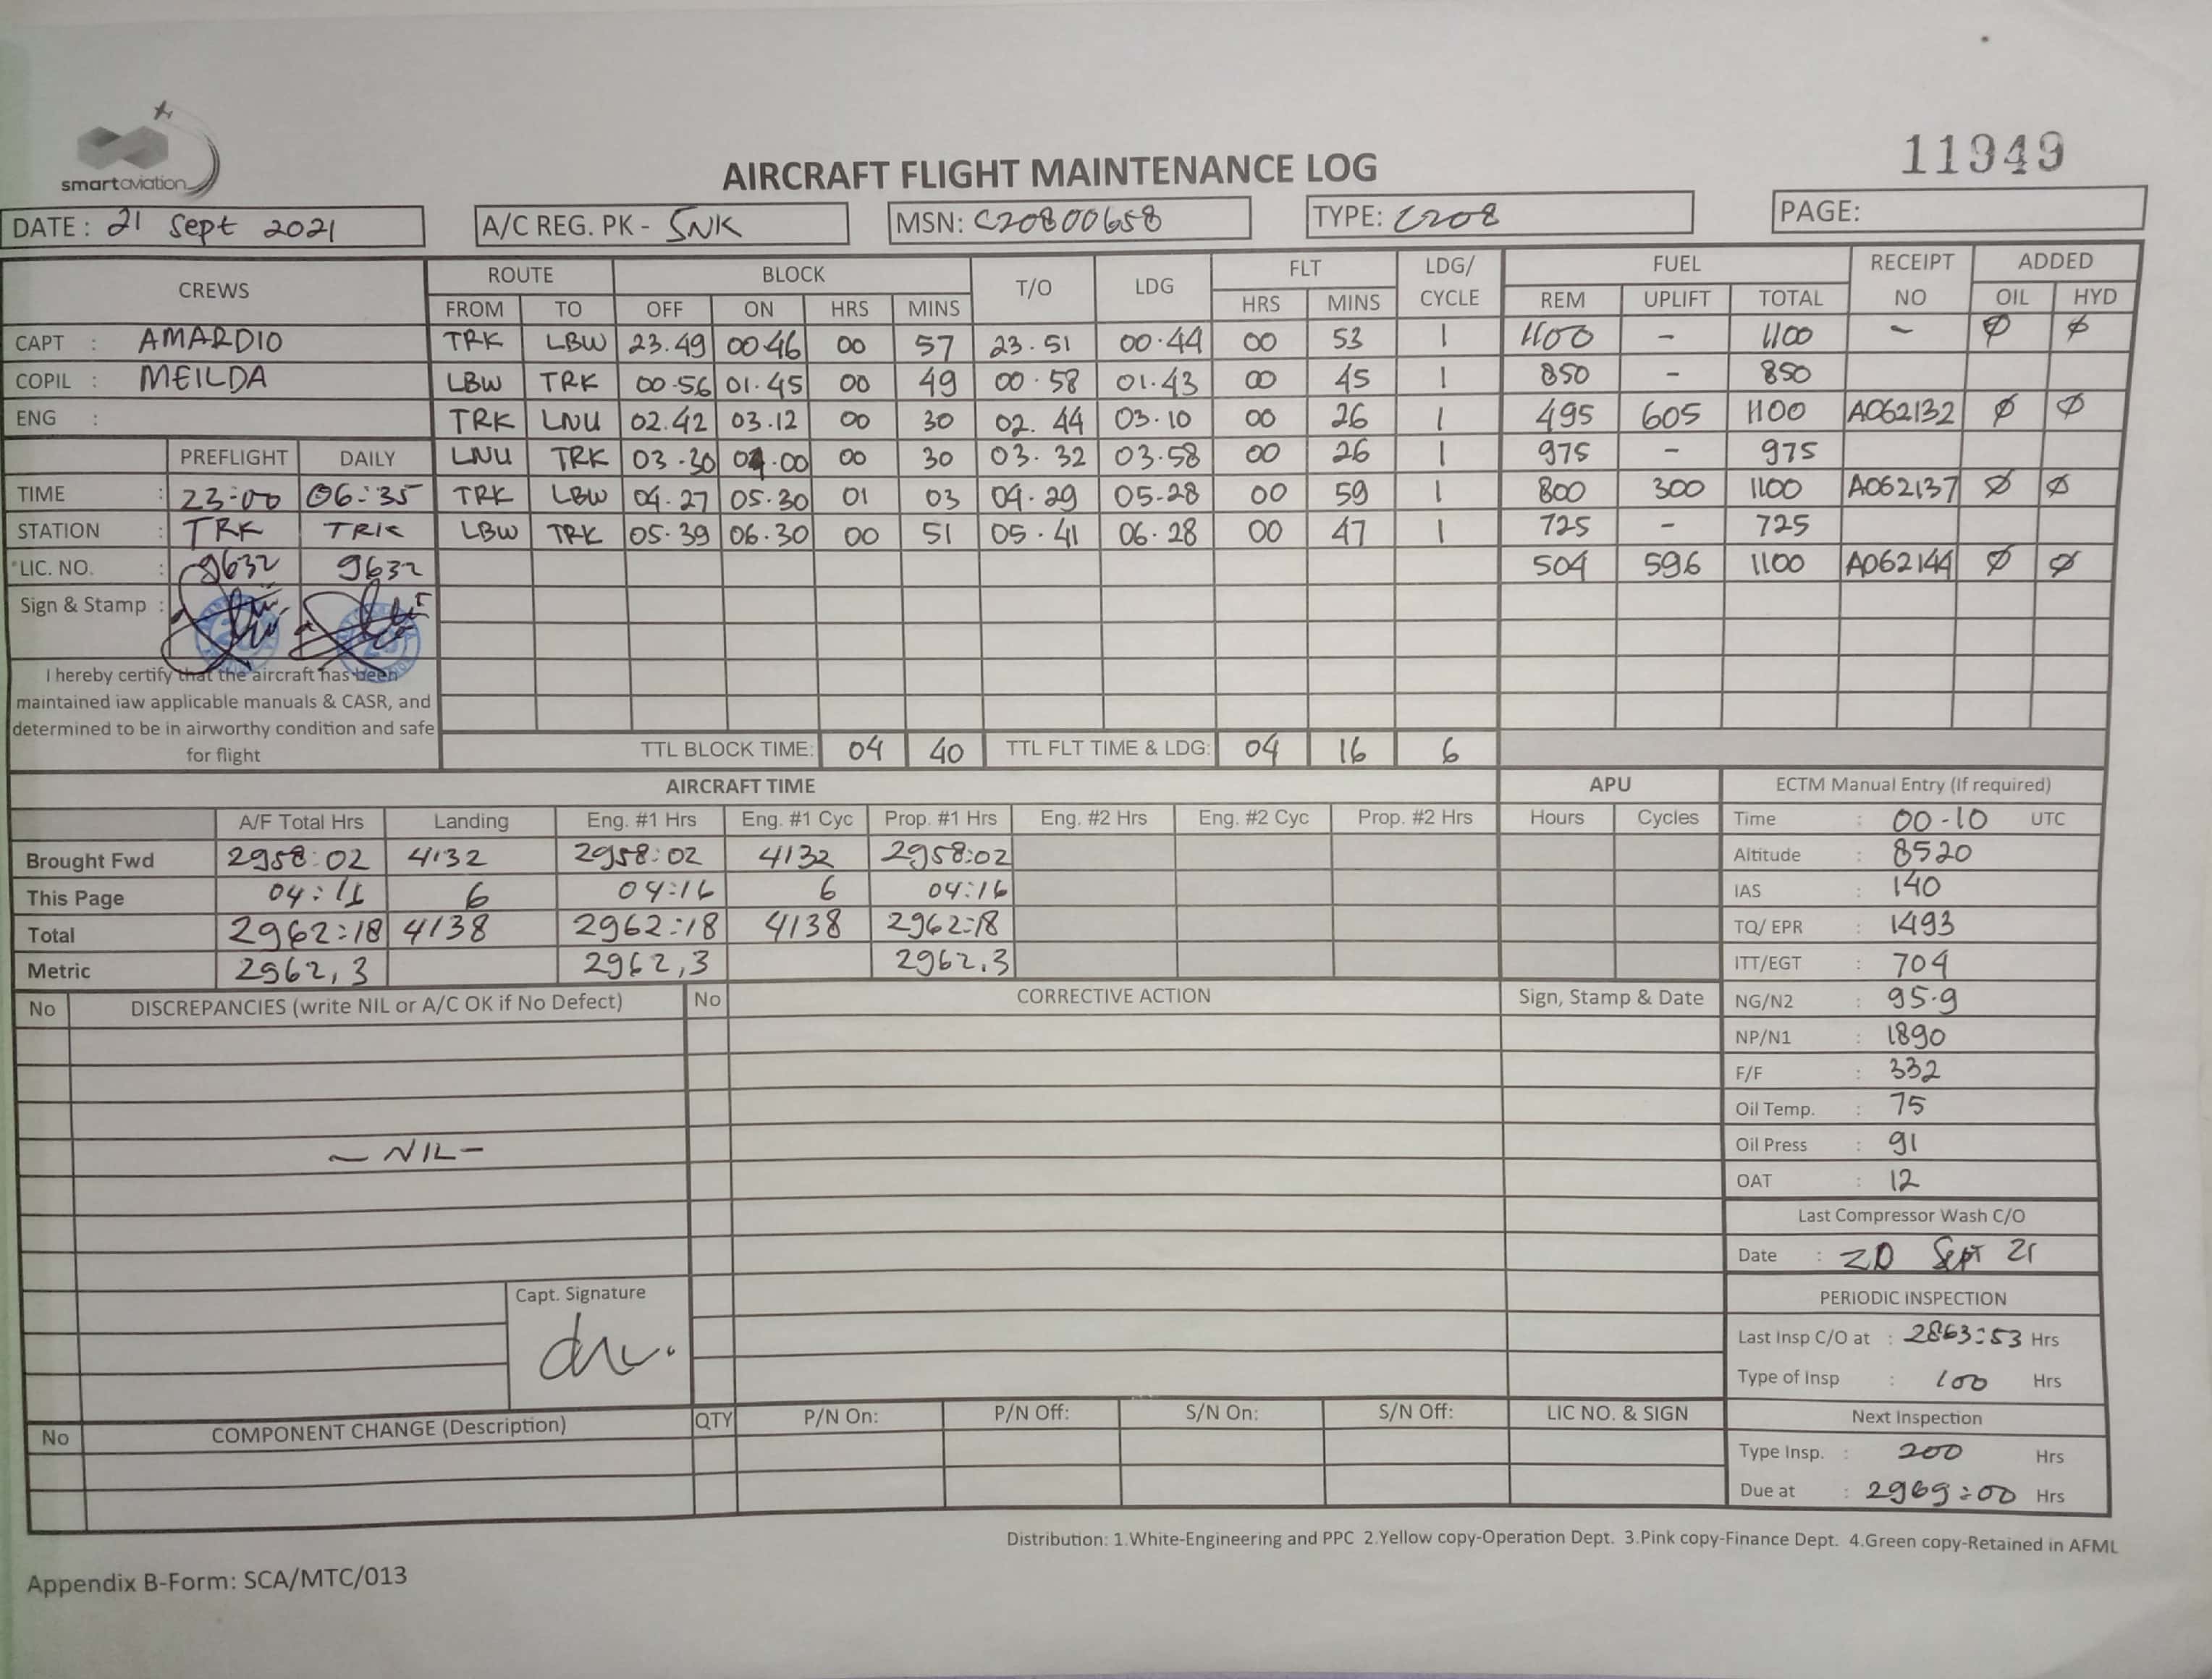 smartaviation
11949
AIRCRAFT FLIGHT MAINTENANCE LOG
DATE : 21 Sept 2021 A/C REG. PK - SNK MSN: C20800658 TYPE: C208 PAGE:
CREWS ROUTE BLOCK T/O LDG FLT LDG/ CYCLE FUEL RECEIPT NO ADDED
FROM TO OFF ON HRS MINS HRS MINS REM UPLIFT TOTAL OIL HYD
CAPT : AMARDIO TRK LBW 23.49 00.46 00 57 23.51 00.44 00 53 1 1100 - 1100 - Ø Ø
COPIL : MEILDA LBW TRK 00.56 01.45 00 49 00.58 01.43 00 45 1 850 - 850
ENG : TRK LNU 02.42 03.12 00 30 02.44 03.10 00 26 1 495 605 1100 A062132 Ø Ø
PREFLIGHT DAILY LNU TRK 03.30 04.00 00 30 03.32 03.58 00 26 1 975 - 975
TIME : 23:00 06:35 TRK LBW 04.27 05.30 01 03 04.29 05.28 00 59 1 800 300 1100 A062137 Ø Ø
STATION : TRK TRK LBW TRK 05.39 06.30 00 51 05.41 06.28 00 47 1 725 - 725
LIC. NO. : 9632 9632 504 596 1100 A062144 Ø Ø
Sign & Stamp :
I hereby certify that the aircraft has been
maintained iaw applicable manuals & CASR, and
determined to be in airworthy condition and safe
for flight
TTL BLOCK TIME: 04 40 TTL FLT TIME & LDG: 04 16 6
AIRCRAFT TIME APU ECTM Manual Entry (If required)
A/F Total Hrs Landing Eng. #1 Hrs Eng. #1 Cyc Prop. #1 Hrs Eng. #2 Hrs Eng. #2 Cyc Prop. #2 Hrs Hours Cycles Time : 00-10 UTC
Brought Fwd 2958:02 4132 2958:02 4132 2958:02 Altitude : 8520
This Page 04:16 6 04:16 6 04:16 IAS : 140
Total 2962:18 4138 2962:18 4138 2962:18 TQ/ EPR : 1493
Metric 2962,3 2962,3 2962.3 ITT/EGT : 704
No DISCREPANCIES (write NIL or A/C OK if No Defect) No CORRECTIVE ACTION Sign, Stamp & Date NG/N2 : 95.9
NP/N1 : 1890
F/F : 332
Oil Temp. : 75
- NIL - Oil Press : 91
OAT : 12
Last Compressor Wash C/O
Date : 20 Sept 21
Capt. Signature PERIODIC INSPECTION
Last Insp C/O at : 2863:53 Hrs
Type of Insp : 100 Hrs
No COMPONENT CHANGE (Description) QTY P/N On: P/N Off: S/N On: S/N Off: LIC NO. & SIGN Next Inspection
Type Insp. : 200 Hrs
Due at : 2969:00 Hrs
Distribution: 1.White-Engineering and PPC 2.Yellow copy-Operation Dept. 3.Pink copy-Finance Dept. 4.Green copy-Retained in AFML
Appendix B-Form: SCA/MTC/013